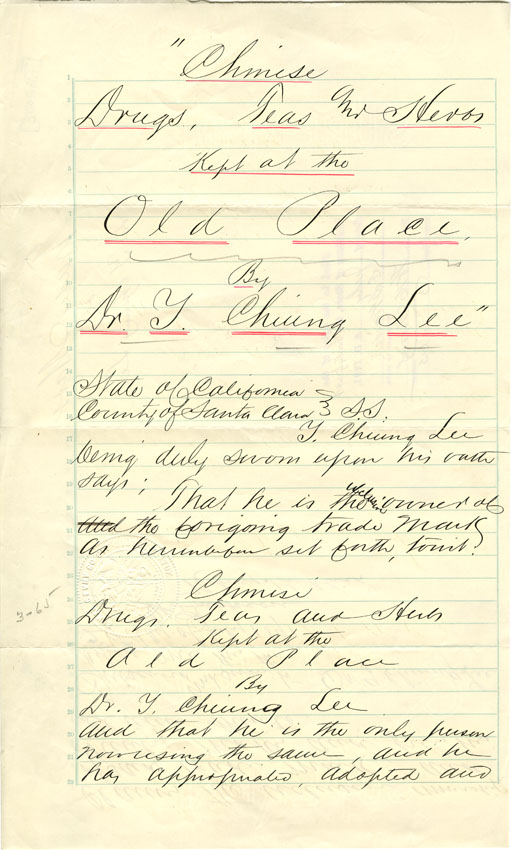 "Chinese
Drugs, Teas and Herbs
Kept at the
Old Place,
By
Dr. T. Cheung Lee"
State of California
County of Santa Clara } S.S.
T. Cheung Lee
being duly sworn upon his oath
says;
That he is the owner of
and the foregoing trade Mark
as hereinbefore set forth, towit:
Chinese
Drugs, Teas and Herbs
Kept at the
Old Place
By
Dr. T. Cheung Lee
and that he is the only person
now using the same, and he
has appropriated, adopted and
3-65